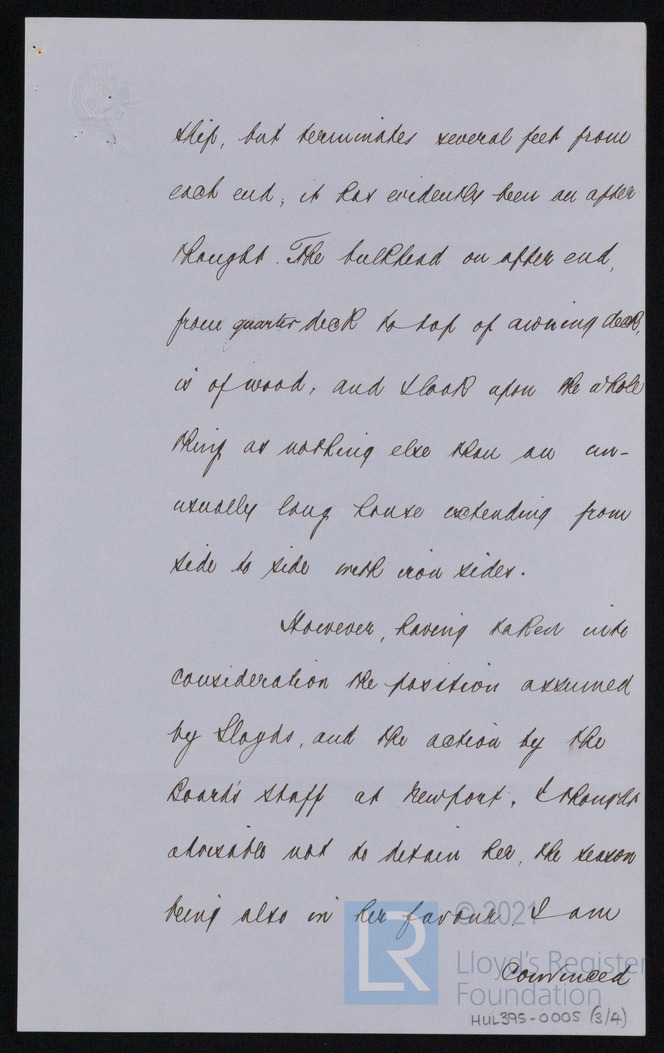 ship, but terminates several feet from
each end; it has evidently been an after
thought. The bulkhead on after end,
from quarter deck to top of awning deck,
is of wood, and I look upon the whole
thing as nothing else than an un-
usually long house extending from
side to side with iron sides.
However, having taken into
consideration the position assumed
by Lloyds, and the action by the
Board's staff at Newport, I thought
advisable not to detain her, the season
being also in her favour. I am
convinced
© 2021
LR
Lloyd's Register
Foundation
HUL395-0005 (3/4)